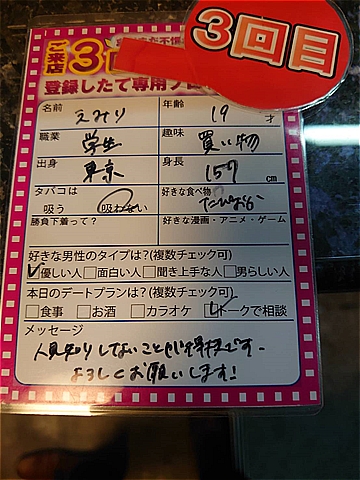 3回目
ご来店
3
登録したて専用プロ
名前 えみり 年齢 19 才
職業 学生 趣味 買い物
出身 東京 身長 157 cm
タバコは 吸う 吸わない 好きな食べ物
勝負下着って? 好きな漫画・アニメ・ゲーム
好きな男性のタイプは?(複数チェック可)
優しい人 面白い人 聞き上手な人 男らしい人
本日のデートプランは?(複数チェック可)
食事 お酒 カラオケ トークで相談
メッセージ
人見知りしないことが特技です
よろしくお願いします!